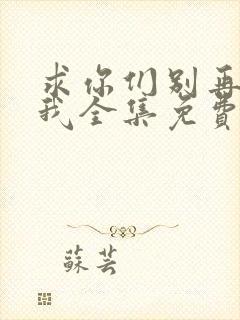 求你们别再
我全集免费
苏芸